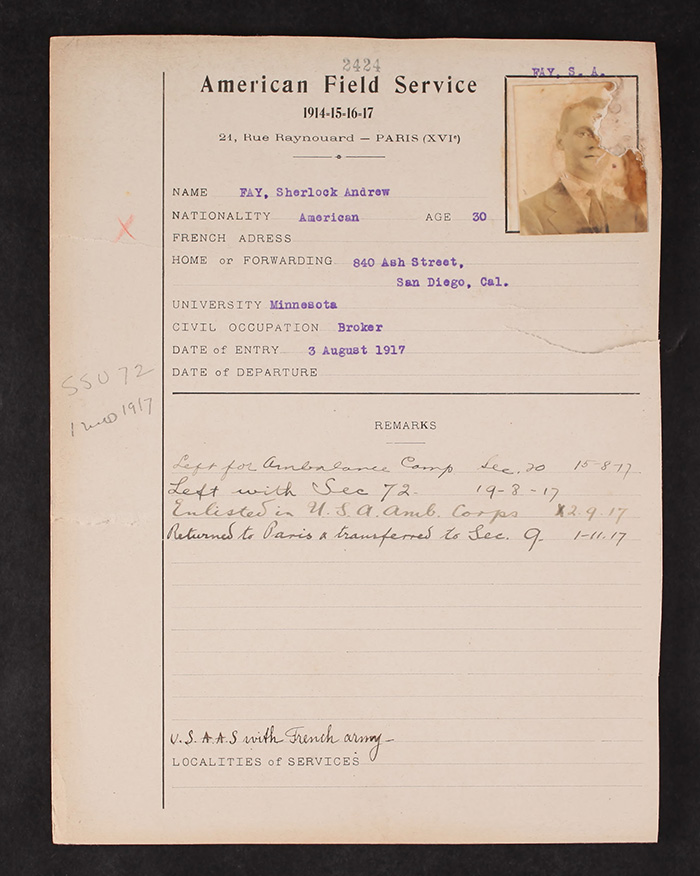 2424
American Field Service
1914-15-16-17
21, Rue Raynouard — PARIS (XVIᵉ)
FAY, S. A.
NAME FAY, Sherlock Andrew
NATIONALITY American AGE 30
FRENCH ADRESS
HOME or FORWARDING 840 Ash Street,
San Diego, Cal.
UNIVERSITY Minnesota
CIVIL OCCUPATION Broker
DATE of ENTRY 3 August 1917
DATE of DEPARTURE
X
SSU 72
1917
REMARKS
Left for Ambulance Camp Sec. 20 15-8-17
Left with Sec 72. 19-8-17
Enlisted in U.S.A. Amb. Corps 2.9.17
Returned to Paris & transferred to Sec. 9. 1-11.17
U.S.A.A.S with French army—
LOCALITIES of SERVICES